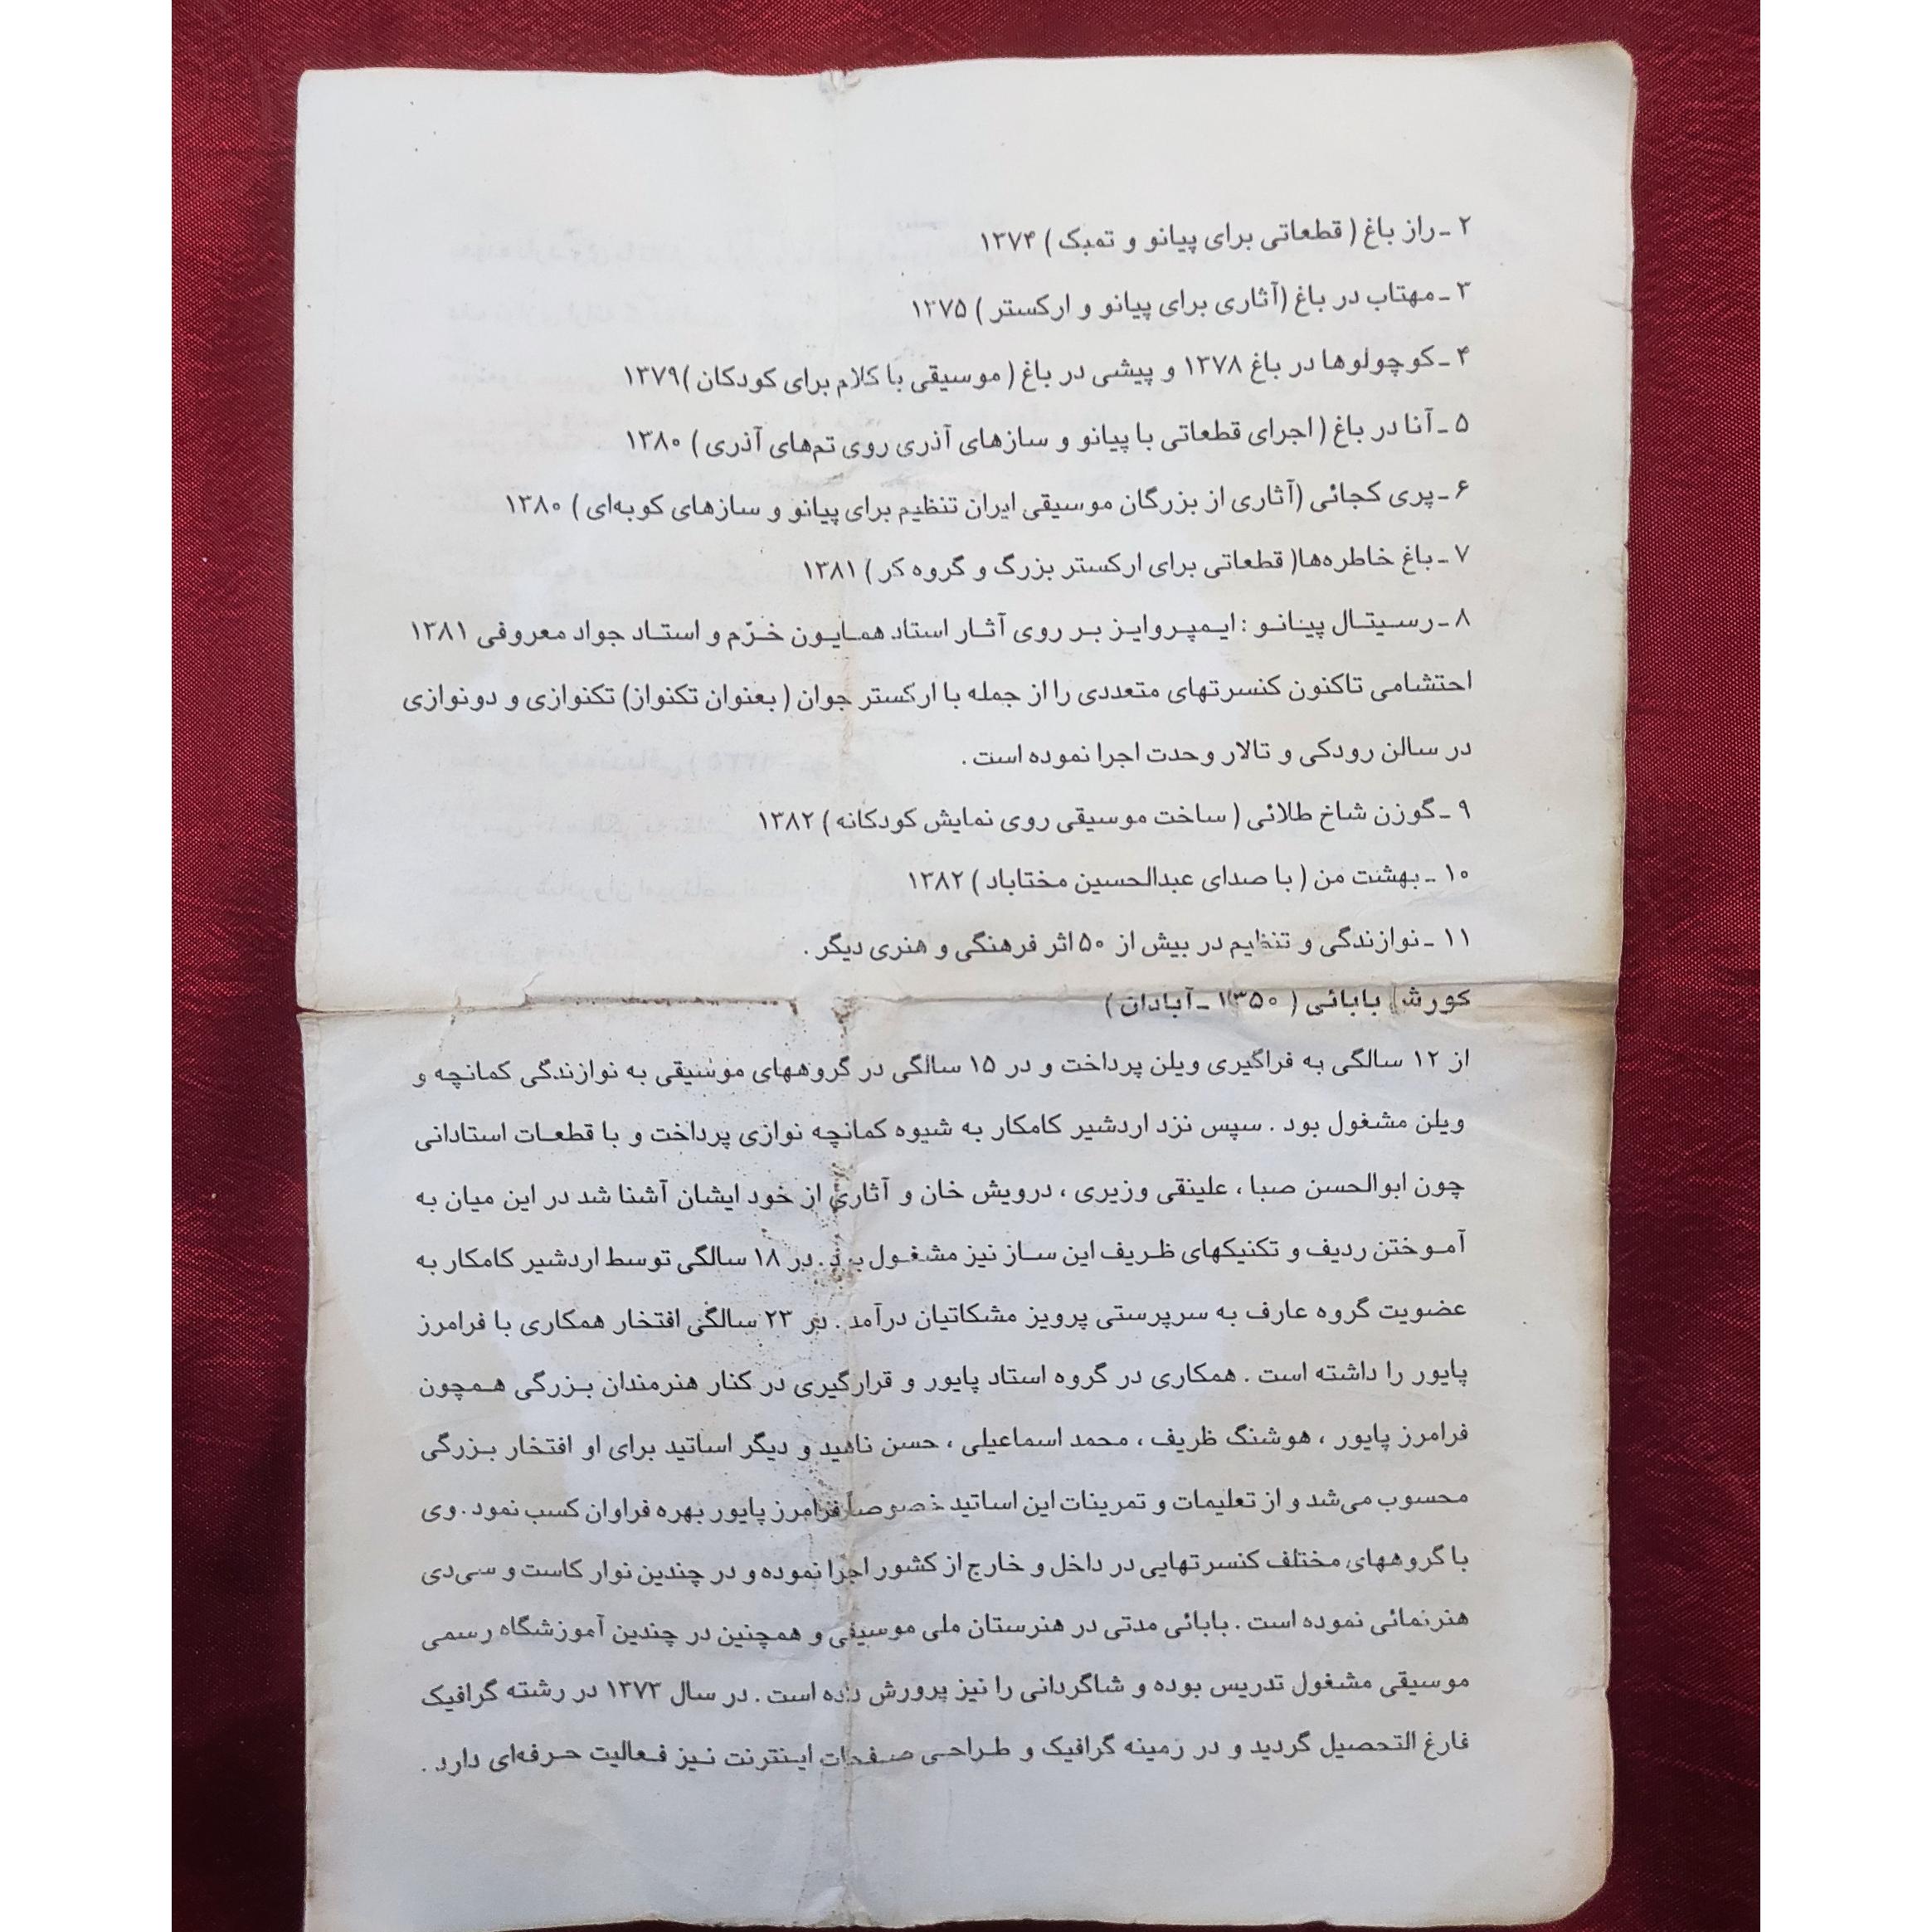 ۲ ـ راز باغ ( قطعاتی برای پیانو و تمبک ) ۱۳۷۴
۳ ـ مهتاب در باغ (آثاری برای پیانو و ارکستر ) ۱۳۷۵
۴ ـ کوچولوها در باغ ۱۳۷۸ و پیشی در باغ ( موسیقی با کلام برای کودکان )۱۳۷۹
۵ ـ آنا در باغ ( اجرای قطعاتی با پیانو و سازهای آذری روی تم‌های آذری ) ۱۳۸۰
۶ ـ پری کجائی (آثاری از بزرگان موسیقی ایران تنظیم برای پیانو و سازهای کوبه‌ای ) ۱۳۸۰
۷ ـ باغ خاطره‌ها( قطعاتی برای ارکستر بزرگ و گروه کر ) ۱۳۸۱
۸ ـ رسیتال پیانو : ایمپروایز بر روی آثار استاد همایون خرّم و استاد جواد معروفی ۱۳۸۱
احتشامی تاکنون کنسرتهای متعددی را از جمله با ارکستر جوان ( بعنوان تکنواز) تکنوازی و دونوازی
در سالن رودکی و تالار وحدت اجرا نموده است .
۹ ـ گوزن شاخ طلائی ( ساخت موسیقی روی نمایش کودکانه ) ۱۳۸۲
۱۰ ـ بهشت من ( با صدای عبدالحسین مختاباد ) ۱۳۸۲
۱۱ ـ نوازندگی و تنظیم در بیش از ۵۰ اثر فرهنگی و هنری دیگر .
کورش بابائی ( ۱۳۵۰ ـ آبادان )
از ۱۲ سالگی به فراگیری ویلن پرداخت و در ۱۵ سالگی در گروههای موسیقی به نوازندگی کمانچه و
ویلن مشغول بود . سپس نزد اردشیر کامکار به شیوه کمانچه نوازی پرداخت و با قطعات استادانی
چون ابوالحسن صبا ، علینقی وزیری ، درویش خان و آثاری از خود ایشان آشنا شد در این میان به
آموختن ردیف و تکنیکهای ظریف این ساز نیز مشغول بود . در ۱۸ سالگی توسط اردشیر کامکار به
عضویت گروه عارف به سرپرستی پرویز مشکاتیان درآمد . در ۲۳ سالگی افتخار همکاری با فرامرز
پایور را داشته است . همکاری در گروه استاد پایور و قرارگیری در کنار هنرمندان بزرگی همچون
فرامرز پایور ، هوشنگ ظریف ، محمد اسماعیلی ، حسن ناهید و دیگر اساتید برای او افتخار بزرگی
محسوب می‌شد و از تعلیمات و تمرینات این اساتید خصوصاً فرامرز پایور بهره فراوان کسب نمود . وی
با گروههای مختلف کنسرتهایی در داخل و خارج از کشور اجرا نموده و در چندین نوار کاست و سی‌دی
هنرنمائی نموده است . بابائی مدتی در هنرستان ملی موسیقی و همچنین در چندین آموزشگاه رسمی
موسیقی مشغول تدریس بوده و شاگردانی را نیز پرورش داده است . در سال ۱۳۷۳ در رشته گرافیک
فارغ التحصیل گردید و در زمینه گرافیک و طراحی صفحات اینترنت نیز فعالیت حرفه‌ای دارد .